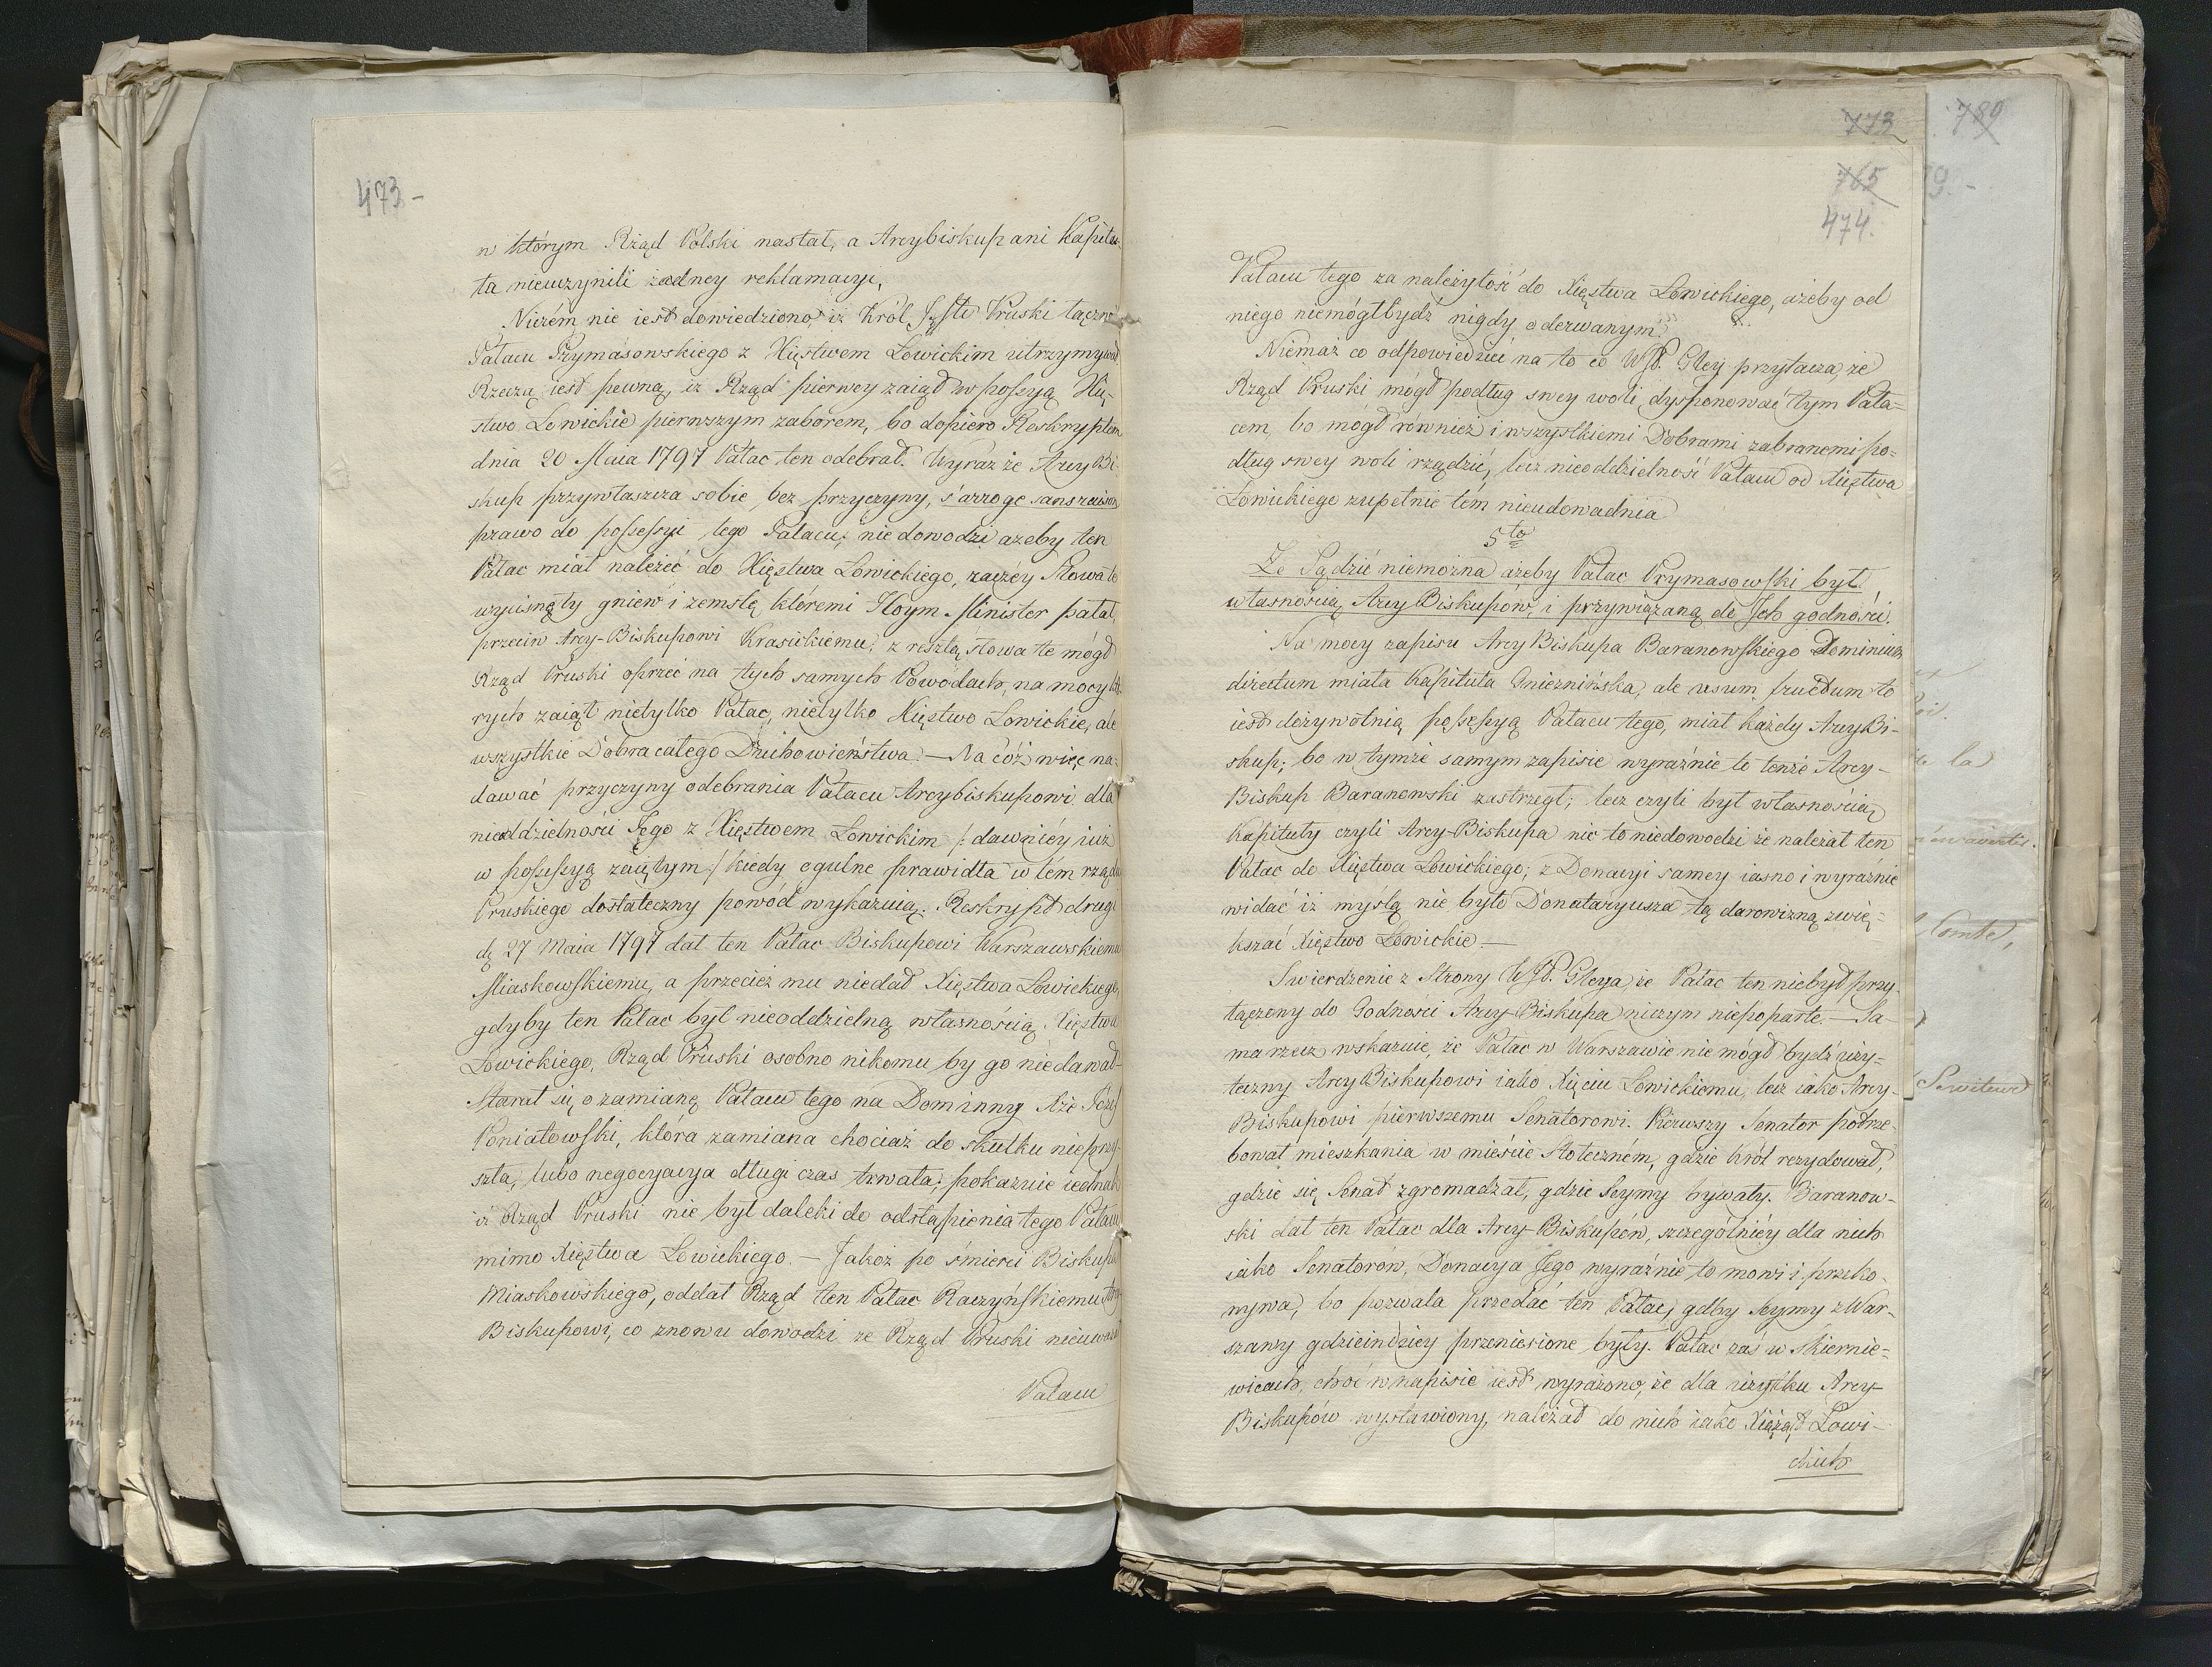 473-
w którym Rząd Polski nastał, a Arcybiskup ani Kapitu-
ła nieuczynili żadney reklamacyi,
Niczém nie iest dowiedziono, iż Król Pruski łączn
Pałacu Prymasowskiego z Xięstwem Łowickim utrzymywał
Rzeczą iest pewną, iż Rząd pierwey zaiął w possyą Xię-
stwo Łowickie pierwszym zaborem, bo dopiero Reskryptem
dnia 20 Maia 1797 Pałac ten odebrał. Wyraz że Arcy Bi-
skup przywłaszcza sobie, bez przyczyny, s'arroge sans raison
prawo do possessyi tego Pałacu, nie dowodzi ażeby ten
Pałac miał należéć do Xięstwa Łowickiego, raczéy Słowa te
wycisnęły gniew i zemstę, któremi Hoym Minister pałał,
przeciw Arcy-Biskupowi Krasickiemu, z resztą słowa te mógł
Rząd Pruski oprzeć na tych samych Powodach, na mocy któ-
rych zaiął nietylko Pałac, nietylko Xięstwo Łowickie, ale
wszystkie Dobra całego Duchowieństwa. — Na cóż więc na-
dawać przyczyny odebrania Pałacu Arcybiskupowi dla
nieoddzielności Jego z Xięstwem Łowickim /: dawniéy iuż
w possessyą zaiętym :/ kiedy ogulne prawidła w tém rządu
Pruskiego dostateczny powód wykazuią. Reskrypt drugi
dą 27 Maia 1797 dał ten Pałac Biskupowi Warszawskiemu
Miaskowskiemu, a przecież mu niedał Xięstwa Łowickiego,
gdyby ten Pałac był nieoddzielną własnością Xięstwa
Łowickiego, Rząd Pruski osobno nikomu by go niedawał
Starał się o zamianę Pałacu tego na Dominny Xże Józef
Poniatowski, która zamiana chociaż do skutku nieprzy-
szła, lubo negocyacya długi czas trwała, pokazuie iednak
iż Rząd Pruski nie był daleki do odstąpienia tego Pałacu
mimo Xięstwa Łowickiego. — Jakoż po śmierci Biskupa
Miaskowskiego, oddał Rząd ten Pałac Raczyńskiemu Arcy-
Biskupowi, co znowu dowodzi że Rząd Pruski nieuważał
Pałacu
773
789
765
474.
Pałacu tego za należytość do Xięstwa Łowickiego, ażeby od
niego niemógł bydź nigdy oderwanym.
Niemasz co odpowiedzieć na to co WJP. Gley przytacza, że
Rząd Pruski mógł podług swey woli dysponować tym Pała=
cem, bo mógł również i wszystkiemi Dobrami zabranemi po=
dług swey woli rządzić, lecz nieoddzielność Pałacu od Xięstwa
Łowickiego zupełnie tém nieudowadnia
5to
Że Sądzić niemożna ażeby Pałac Prymasowski był
własnością Arcy Biskupów, i przywiązaną do Jch godności.
Na mocy zapisu Arcy Biskupa Baranowskiego Dominium
directum miała Kapituła Gnieźnińska, ale usum fructum to
iest dożywotnią possessyą Pałacu tego, miał każdy Arcy Bi-
skup; bo w tymże samym zapisie wyraźnie to tenże Arcy-
Biskup Baranowski zastrzegł; lecz czyli był własnością
Kapituły czyli Arcy-Biskupa nic to niedowodzi że należał ten
Pałac do Xięstwa Łowickiego; z Donacyi samey iasno i wyraźnie
widać iż myślą nie było Donataryusza tą darowizną zwię=
kszać Xięstwo Łowickie. —
Twierdzenie z Strony WJP. Gleya, że Pałac ten niebył przy-
łączony do Godności Arcy-Biskupa niczym niepoparte. — Sa-
ma rzecz wskazuie, że Pałac w Warszawie nie mógł bydź uży=
teczny Arcy Biskupowi iako Xięciu Łowickiemu, lecz iako Arcy-
Biskupowi pierwszemu Senatorowi. Pierwszy Senator potrze-
bował mieszkania w mieście Stołeczném, gdzie Król rezydował,
gdzie się Senat zgromadzał, gdzie Seymy bywały. Baranow-
ski dał ten Pałac dla Arcy-Biskupów, szczególniéy dla nich
iako Senatorów, Donacya Jego wyraźnie to mowi i przeko-
nywa, bo pozwala przedać ten Pałac, gdby Seymy z War-
szawy gdzieindziey przeniesione były. Pałac zaś w Skiernie=
wicach, choć w napisie iest wyrażono, że dla użytku Arcy-
Biskupów wystawiony, należał do nich iako Xiążąt Łowi-
ckich
la
Comte,